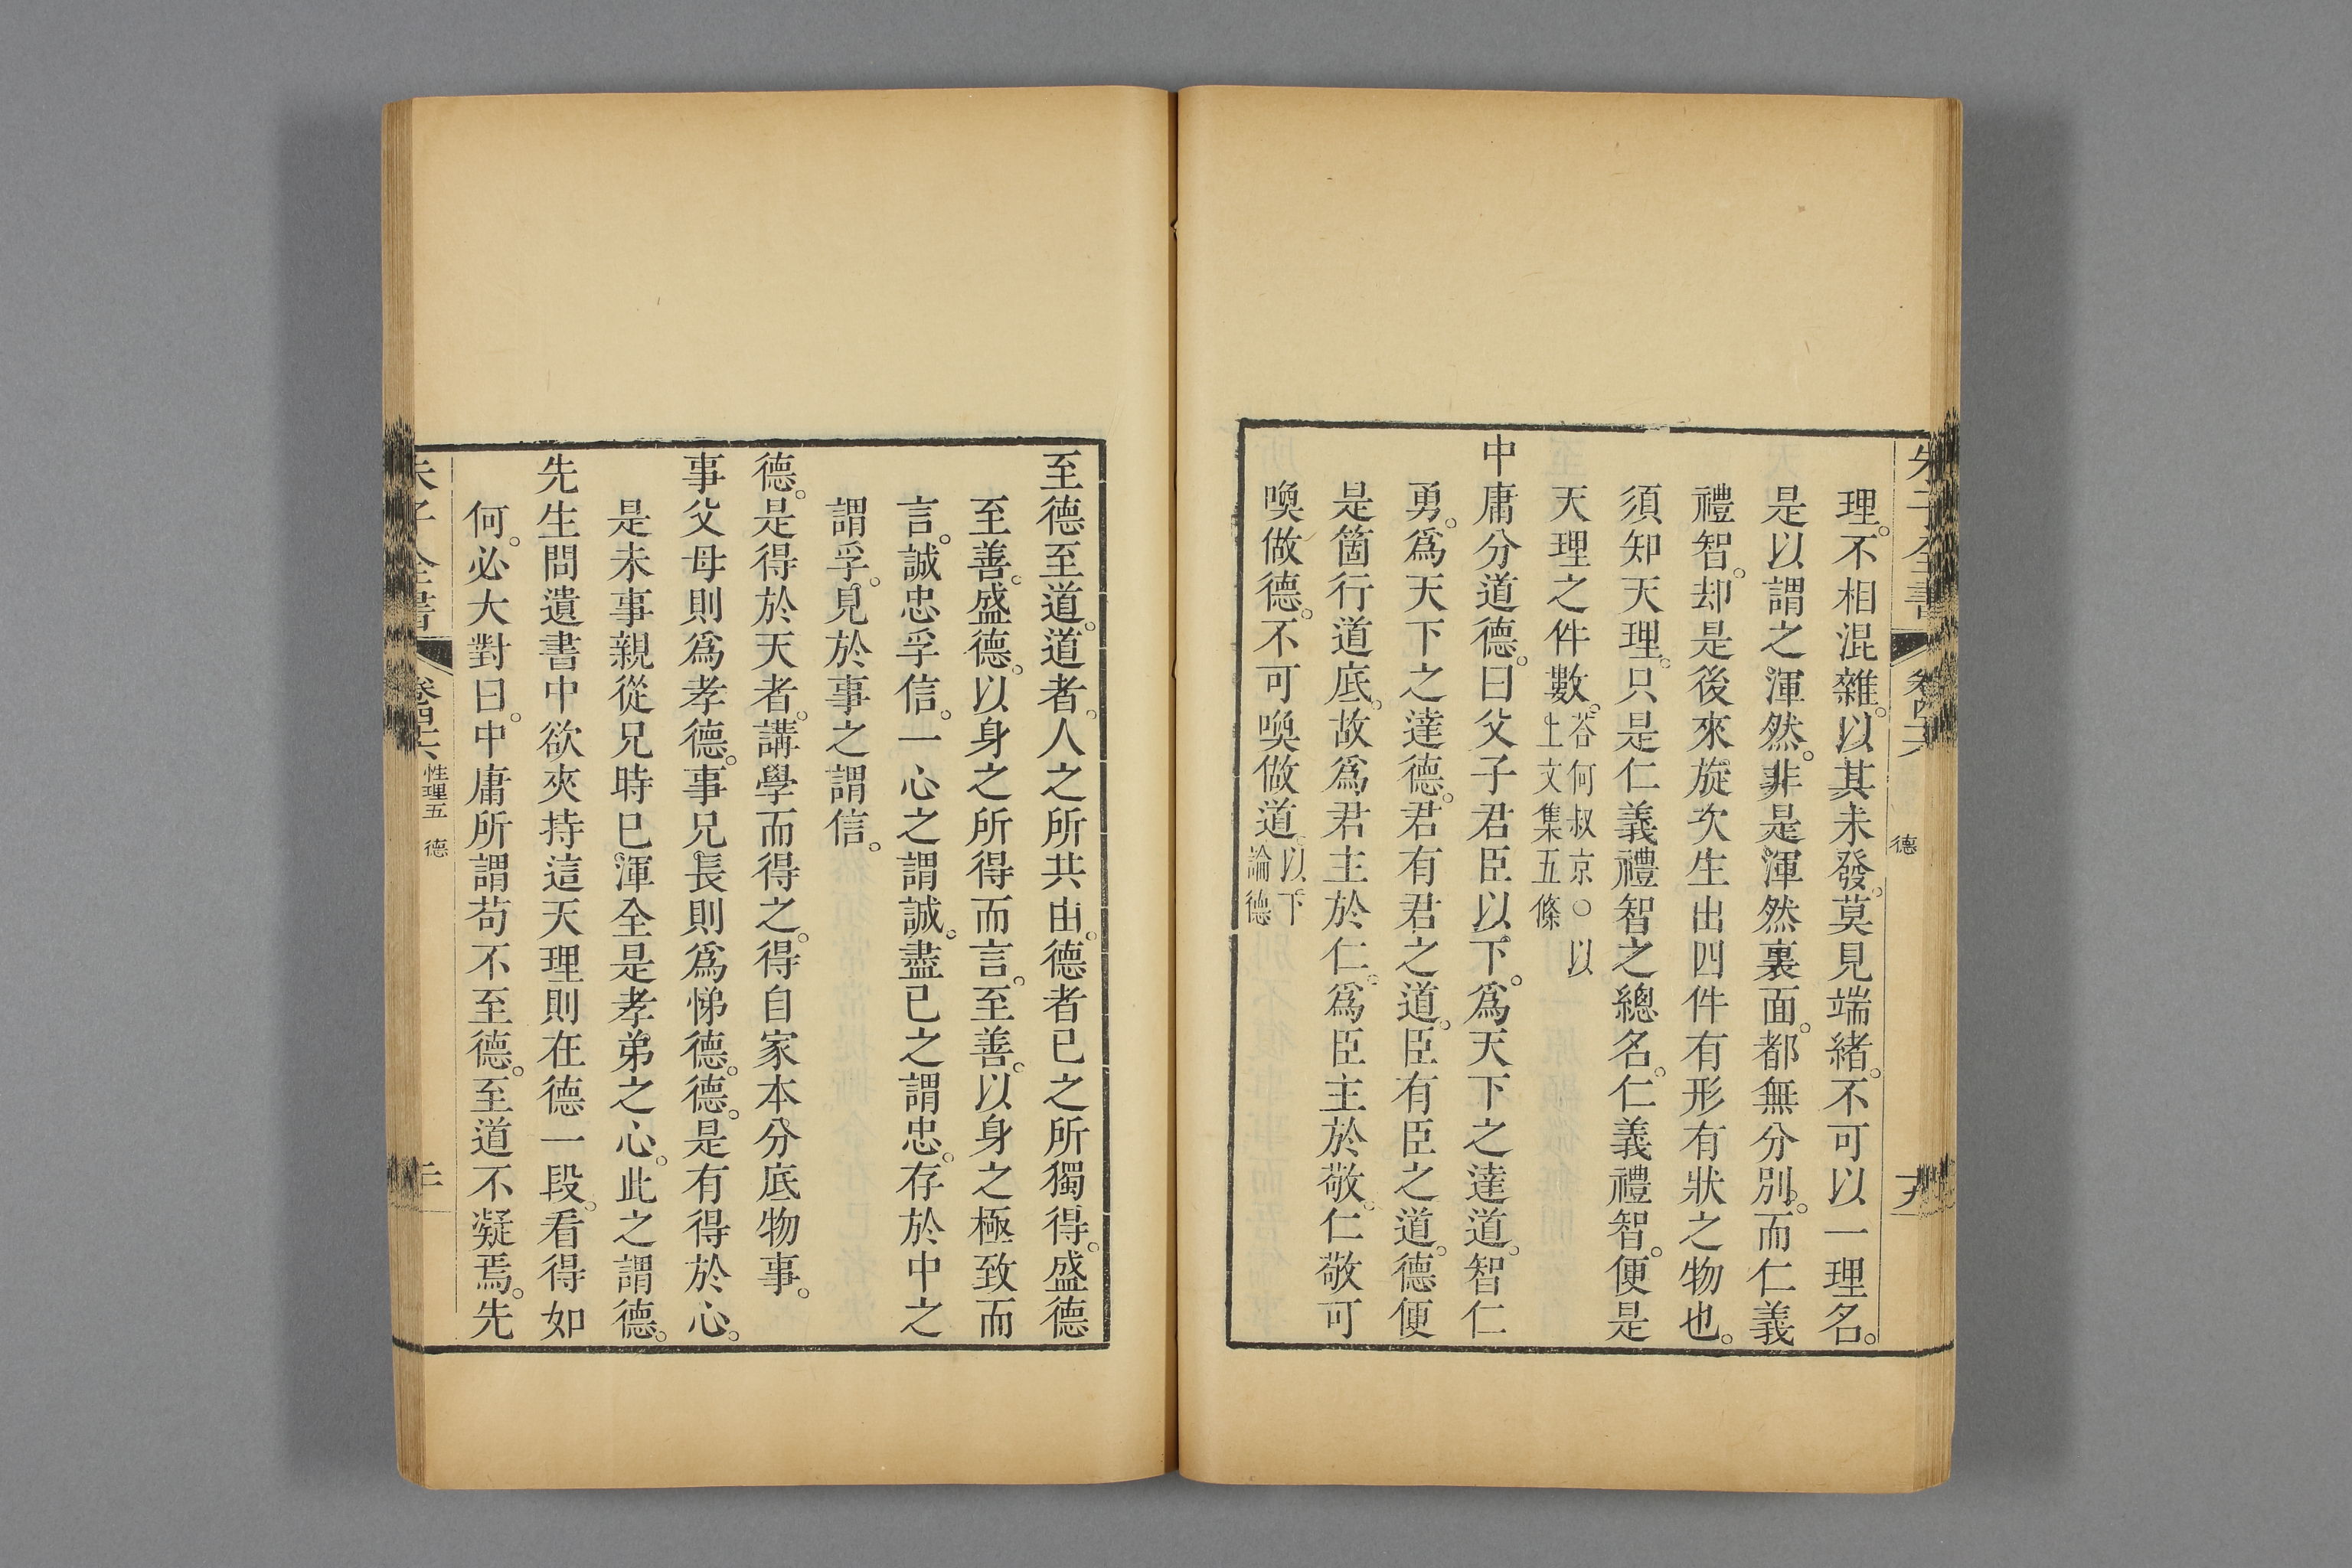 朱子全書 卷四十六 德 十九
理。不相混雜。以其未發。莫見端緒。不可以一理名。
是以謂之渾然。非是渾然裏面。都無分別。而仁義
禮智。却是後來旋次生出四件有形有狀之物也。
須知天理。只是仁義禮智之總名。仁義禮智。便是
天理之件數。答何叔京○以
上文集五條
中庸分道德。曰父子君臣以下。爲天下之達道。智仁
勇。爲天下之達德。君有君之道。臣有臣之道。德便
是箇行道底。故爲君主於仁。爲臣主於敬。仁敬可
喚做德。不可喚做道。以下
論德
至德至道。道者。人之所共由。德者己之所獨得。盛德
至善。盛德。以身之所得而言。至善。以身之極致而
言。誠忠孚信。一心之謂誠。盡己之謂忠。存於中之
謂孚。見於事之謂信。
德。是得於天者。講學而得之。得自家本分底物事。
事父母則爲孝德。事兄長則爲悌德。德。是有得於心。
是未事親從兄時。已渾全是孝弟之心。此之謂德。
先生問遺書中欲夾持這天理則在德一段。看得如
何。必大對曰。中庸所謂苟不至德。至道不凝焉。先
朱子全書 卷四十六 性理五 德 二十